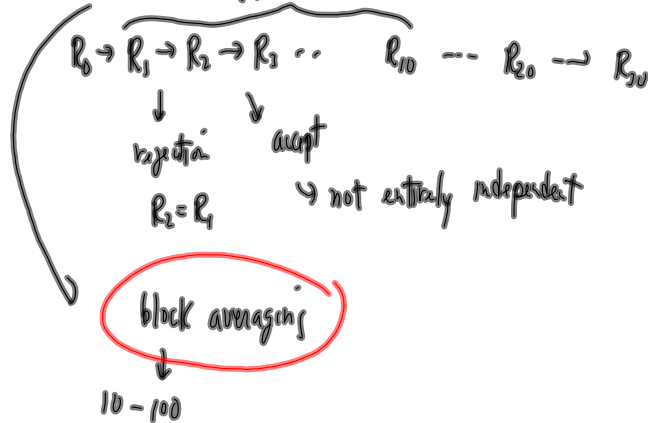 R₀ → R₁ → R₂ → R₃ .. R₁₀ --- R₂₀ --→ R₃₀
↓ ↘
rejection accept
R₂ = R₁ ↳ not entirely independent
block averaging
↓
10 - 100